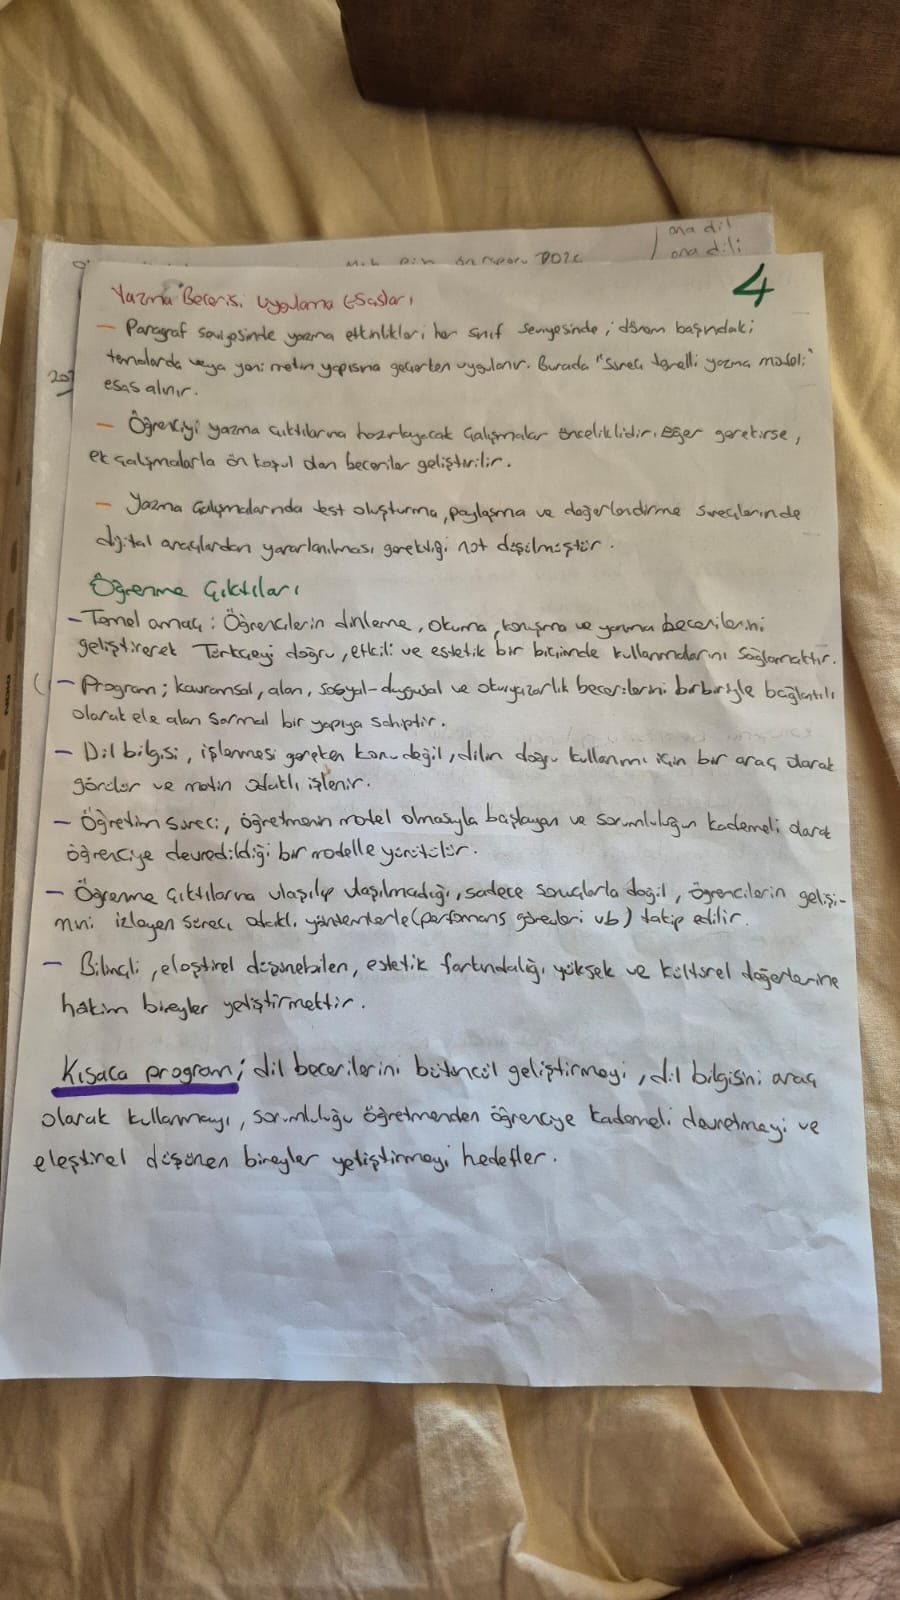 ana dil
ana dili
4
Yazma Becerisi Uygulama Esasları
— Paragraf seviyesinde yazma etkinlikleri, her sınıf seviyesinde, dönem başındaki
temalarda veya yeni metin yapısına geçerken uygulanır. Burada "Süreç temelli yazma modeli"
esas alınır.
— Öğrenciyi yazma çıktılarına hazırlayacak çalışmalar önceliklidir. Eğer gerekirse,
ek çalışmalarla ön koşul olan beceriler geliştirilir.
— Yazma çalışmalarında test oluşturma, paylaşma ve değerlendirme süreçlerinde
dijital araçlardan yararlanılması gerektiği not düşülmüştür.
Öğrenme Çıktıları
- Temel amaç: Öğrencilerin dinleme, okuma, konuşma ve yazma becerilerini
geliştirerek Türkçeyi doğru, etkili ve estetik bir biçimde kullanmalarını sağlamaktır.
- Program; kavramsal, alan, sosyal-duygusal ve okuryazarlık becerilerini birbiriyle bağlantılı
olarak ele alan sarmal bir yapıya sahiptir.
- Dil bilgisi, işlenmesi gereken konu değil, dilin doğru kullanımı için bir araç olarak
görülür ve metin odaklı işlenir.
- Öğretim süreci, öğretmenin model olmasıyla başlayan ve sorumluluğun kademeli olarak
öğrenciye devredildiği bir modelle yürütülür.
- Öğrenme Çıktılarına ulaşılıp ulaşılmadığı, sadece sonuçlarla değil, öğrencilerin gelişi-
mini izleyen süreç odaklı yöntemlerle (perfomans görevleri vb) takip edilir.
- Bilinçli, eleştirel düşünebilen, estetik farkındalığı yüksek ve kültürel değerlerine
hakim bireyler yetiştirmektir.
Kısaca program; dil becerilerini bütüncül geliştirmeyi, dil bilgisini araç
olarak kullanmayı, sorumluluğu öğretmenden öğrenciye kademeli devretmeyi ve
eleştirel düşünen bireyler yetiştirmeyi hedefler.